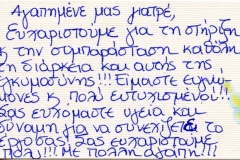 Αγαπημένε μας γιατρέ,
Ευχαριστουμε για τη στήριξη
κ την συμπαράσταση καθόλη
τη διάρκεια και αυτής της
εγκυμοσύνης!!! Είμαστε ευγνώ-
μονες κ πολύ ευτυχισμένοι!!
Σας ευχόμαστε υγεία και
δύναμη για να συνεχίσετε το
έργο σας! Σας ευχαριστούμε
πολύ!!! Με πολλή αγάπη!!!